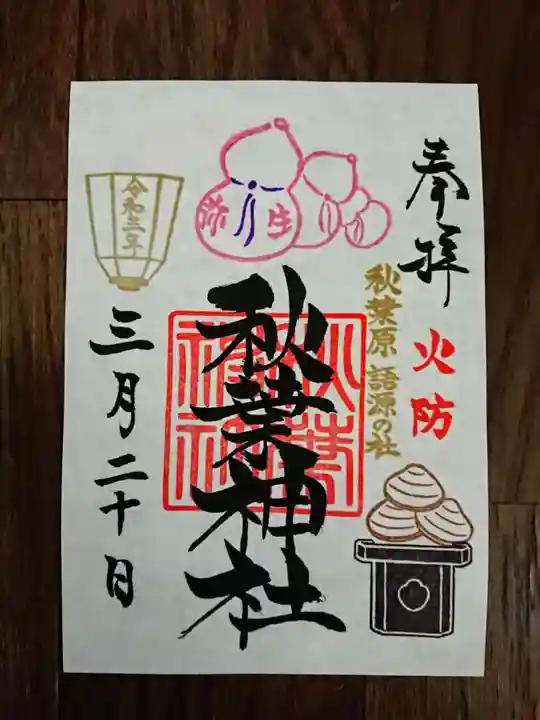 奉拝
火防
秋葉原語源の社
弥生
秋葉神社
秋葉神社
令和三年
三月二十日